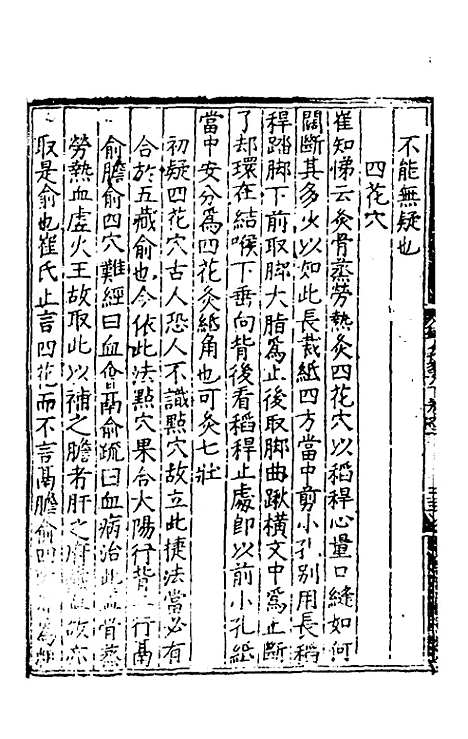 不能無疑也
四花穴
崔知悌云灸骨蒸勞熱灸四花穴以稻稈心量口縫如何
闊斷其多少以如此長裁紙四方當中剪小孔別用長稻
稈踏脚下前取脚大脂爲止後取脚曲䐐橫文中爲止斷
了却環在結喉下垂向背後看稻稈止處即以前小孔紙
當中安分爲四花灸紙角也可灸七壯
初疑四花穴古人恐人不識點穴故立此捷法當必有
合於五藏俞也今依此法點穴果合太陽行背二行鬲
俞膽俞四穴難經曰血會鬲俞疏曰血病治此蓋骨蒸
勞熱血虛火王故取此以補之膽者肝之府故亦
取是俞也崔氏止言四花而不言鬲膽俞四爲